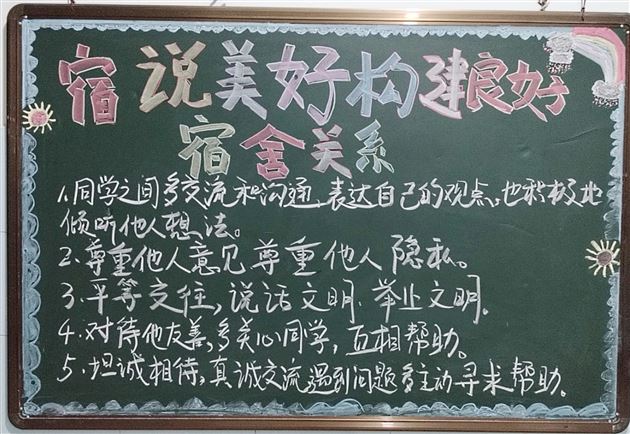 宿说美好构建良好
宿舍关系
1.同学之间多交流和沟通,表达自己的观点,也积极地
倾听他人想法。
2.尊重他人意见尊重他人隐私。
3.平等交往,说话文明.举止文明.
4.对待他友善,多关心同学,互相帮助。
5.坦诚相待,真诚交流遇到问题多主动寻求帮助。